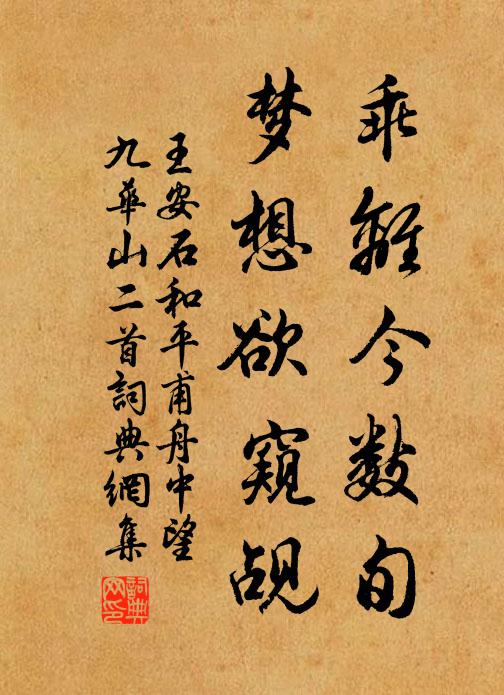 乖離今数旬
梦想欲窺覘
王安石和平甫舟中望
九華山二首詞典網集
詞典
网印